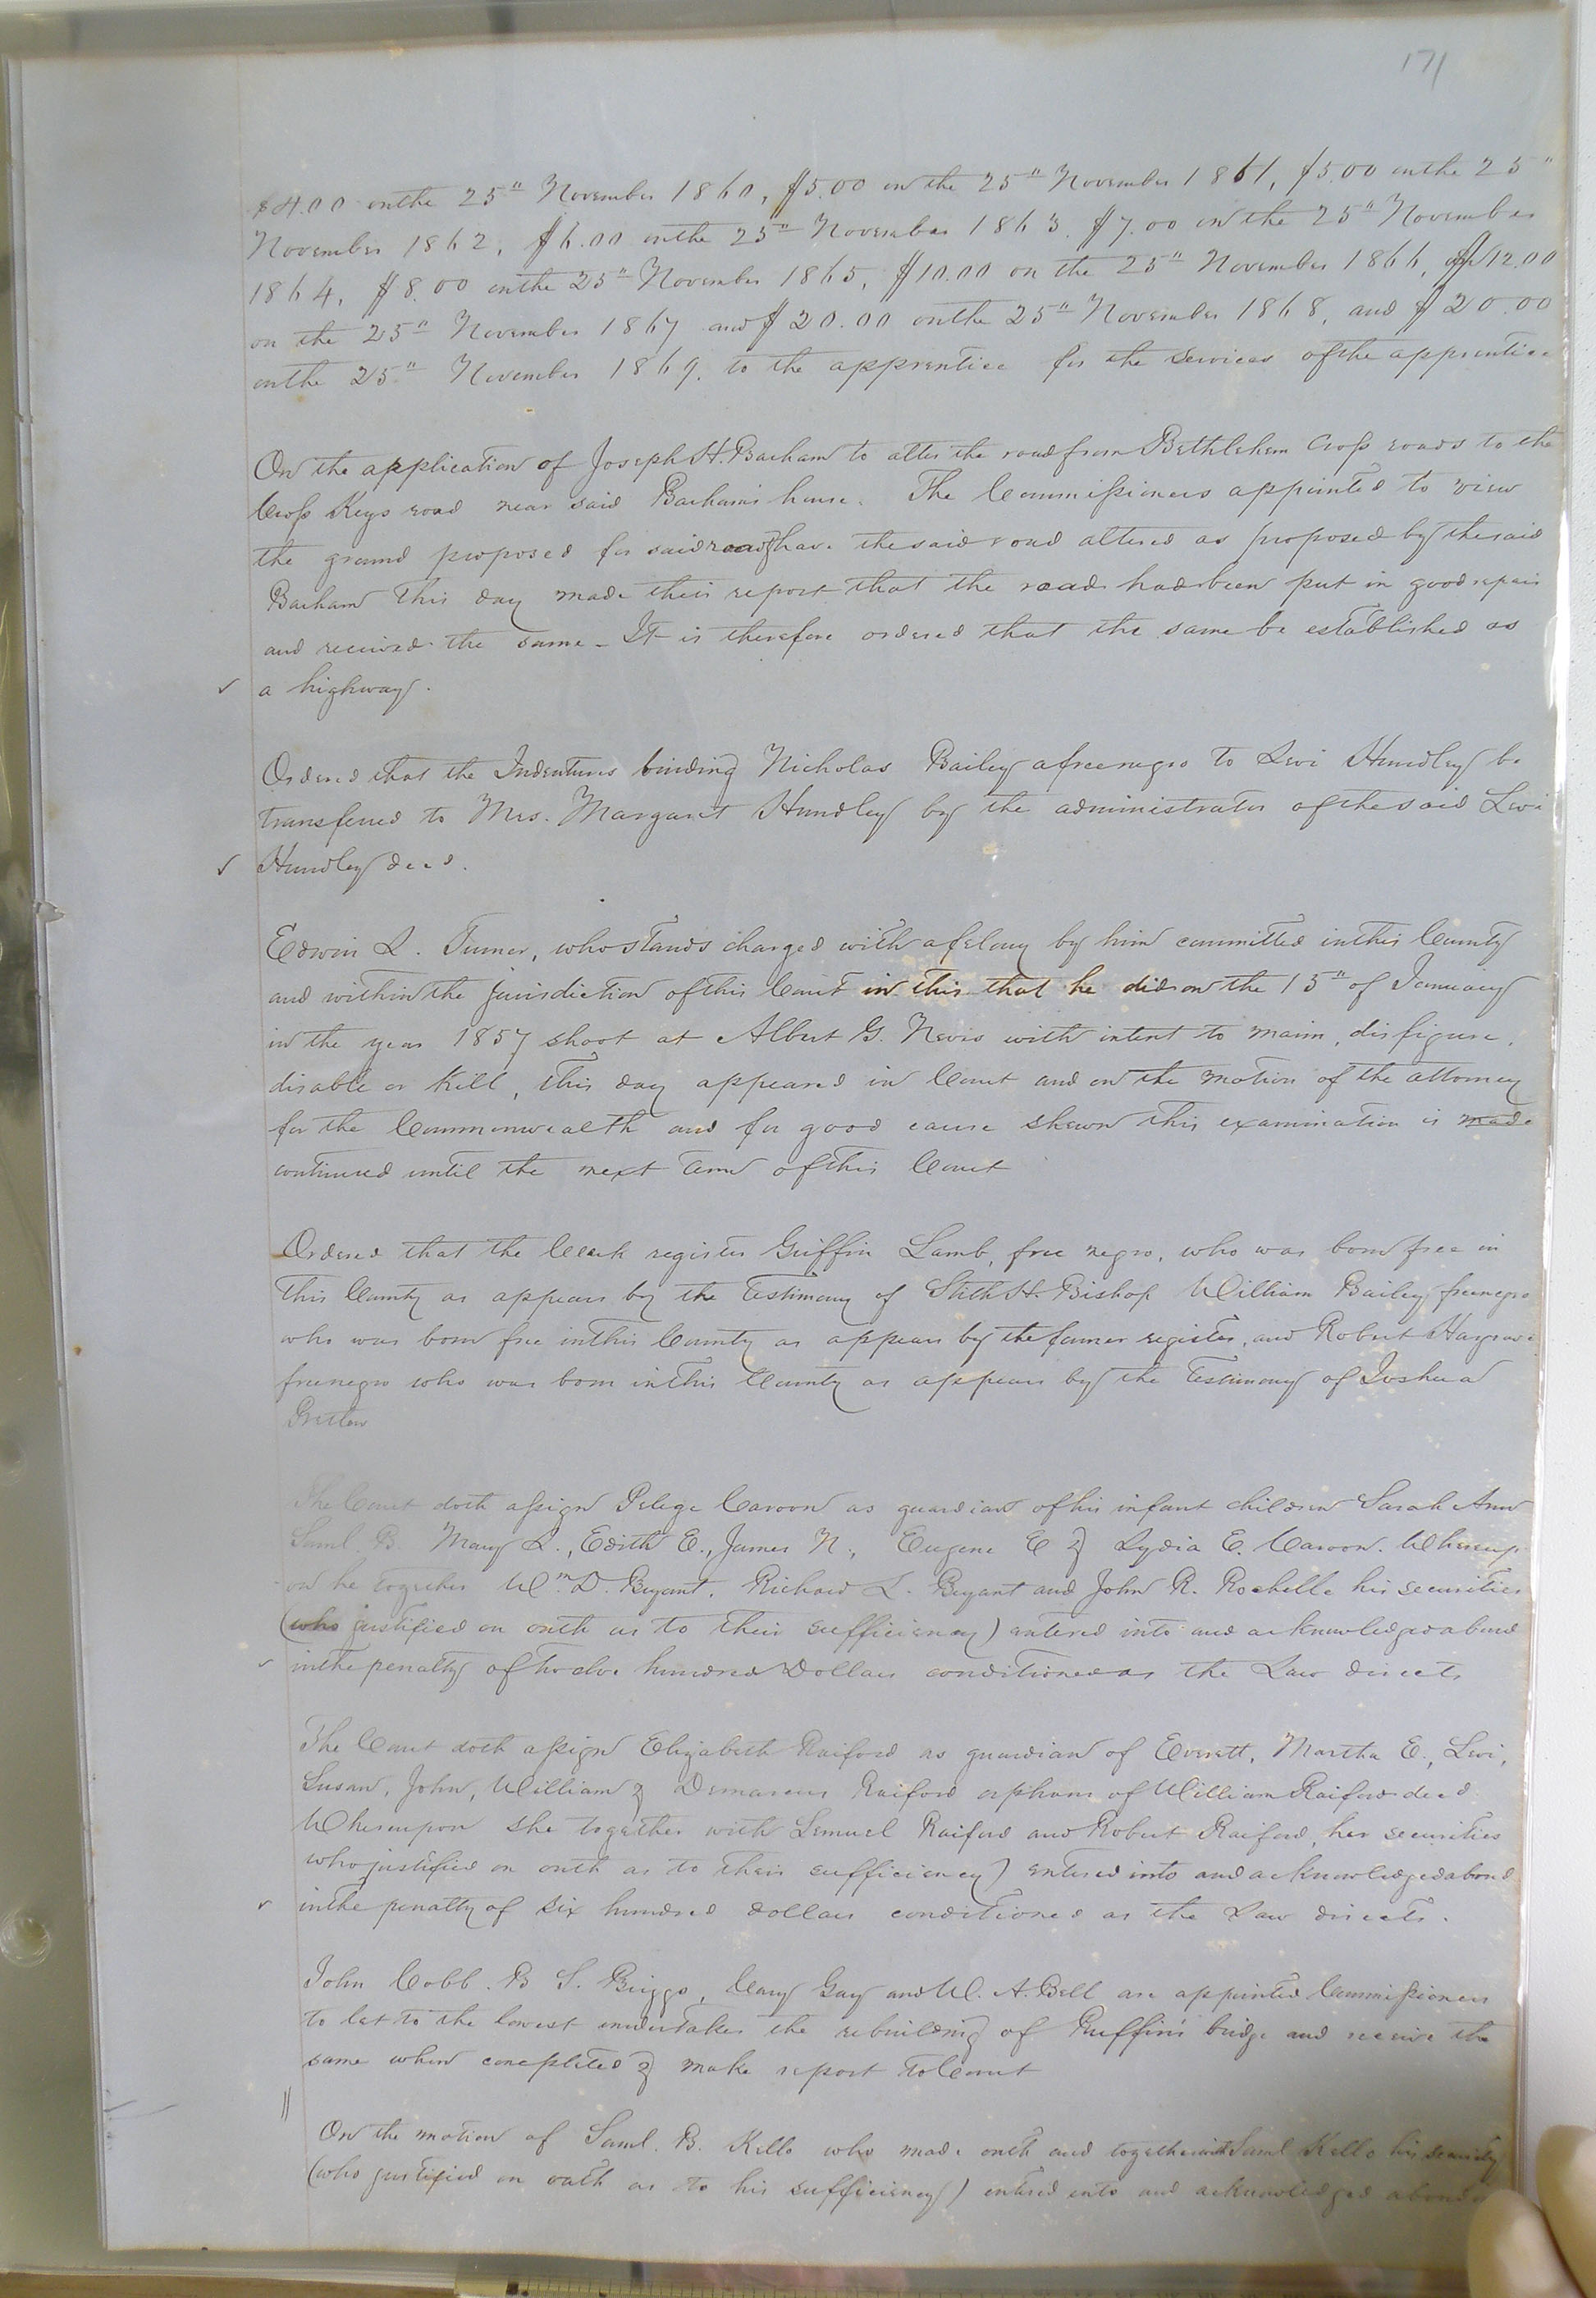 171
$4.00 on the 25" November 1860, $5.00 on the 25" November 1861, $5.00 on the 25"
November 1862, $6.00 on the 25" November 1863. $7.00 on the 25" November
1864, $8.00 on the 25" November 1865, $10.00 on the 25" November 1866, $12.00
on the 25" November 1867 and $20.00 on the 25" November 1868, and $20.00
on the 25" November 1869. to the apprentice for the services of the apprentice
On the application of Joseph H. Barham to alter the road from Bethlehem Cross roads to the
Cross Keys road near said Barham's house. The Commissioners appointed to view
the ground proposed for said road & have the said road altered as proposed by the said
Barham this day made their report that the road had been put in good repair
and received the same - It is therefore ordered that the same be established as
a highway.
Ordered that the Indentures binding Nicholas Bailey a free negro to Levi Hundley be
transferred to Mrs. Margaret Hundley by the administrator of the said Levi
Hundley decd.
Edwin L. Turner, who stands charged with a felony by him committed in this County
and within the jurisdiction of this Court in this that he did on the 15" of January
in the year 1857 shoot at Albert G. Nevis with intent to maim, disfigure,
disable or kill, this day appeared in Court and on the motion of the attorney
for the Commonwealth and for good cause shewn this examination is made
continued until the next term of this Court
Ordered that the Clerk register Griffin Lamb, free negro, who was born free in
this County as appears by the testimony of Stith H. Bishop William Bailey free negro
who was born free in this County as appears by the former register, and Robert Hargrave
free negro who was born in this County as appears by the testimony of Joshua
Pretlow
The Court doth assign Pelege Caroon as guardian of his infant children Sarah Ann
Saml. B. Mary L., Edith E., James N., Eugene E & Lydia E. Caroon. Whereup-
on he together Wm. D. Bryant, Richard L. Bryant and John R. Rochelle his securities
(who justified on oath as to their sufficiency) entered into and acknowledged a bond
in the penalty of twelve hundred Dollars conditioned as the Law directs
The Court doth assign Elizabeth Raiford as guardian of Everett, Martha E., Levi,
Susan, John, William & Demarcus Raiford orphans of William Raiford decd.
Whereupon she together with Lemuel Raiford and Robert Raiford, her securities
who justified on oath as to their sufficiency) entered into and acknowledged a bond
in the penalty of six hundred dollars conditioned as the Law directs.
John Cobb. B S. Briggs, Cary Gay and W. A. Bell are appointed Commissioners
to let to the lowest undertaker the rebuilding of Ruffin's bridge and receive the
same when completed & make report to Court
On the motion of Saml. B. Kello who made oath and together with Saml Kello his security
(who justified on oath as to his sufficiency) entered into and acknowledged a bond